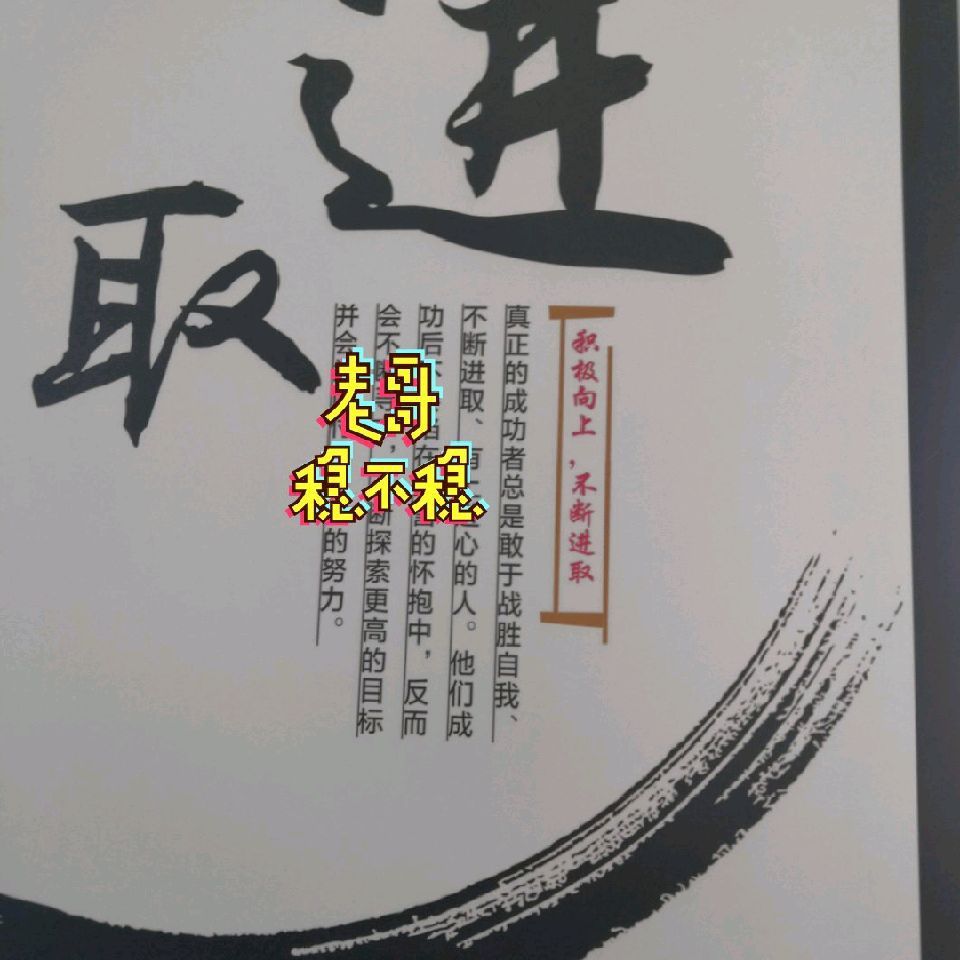 进取
积极向上，不断进取
真正的成功者总是敢于战胜自我、
不断进取、有上进心的人。他们成
功后不
的怀抱中，反而
会不
断探索更高的目标
并会
的努力。
老哥
稳不稳